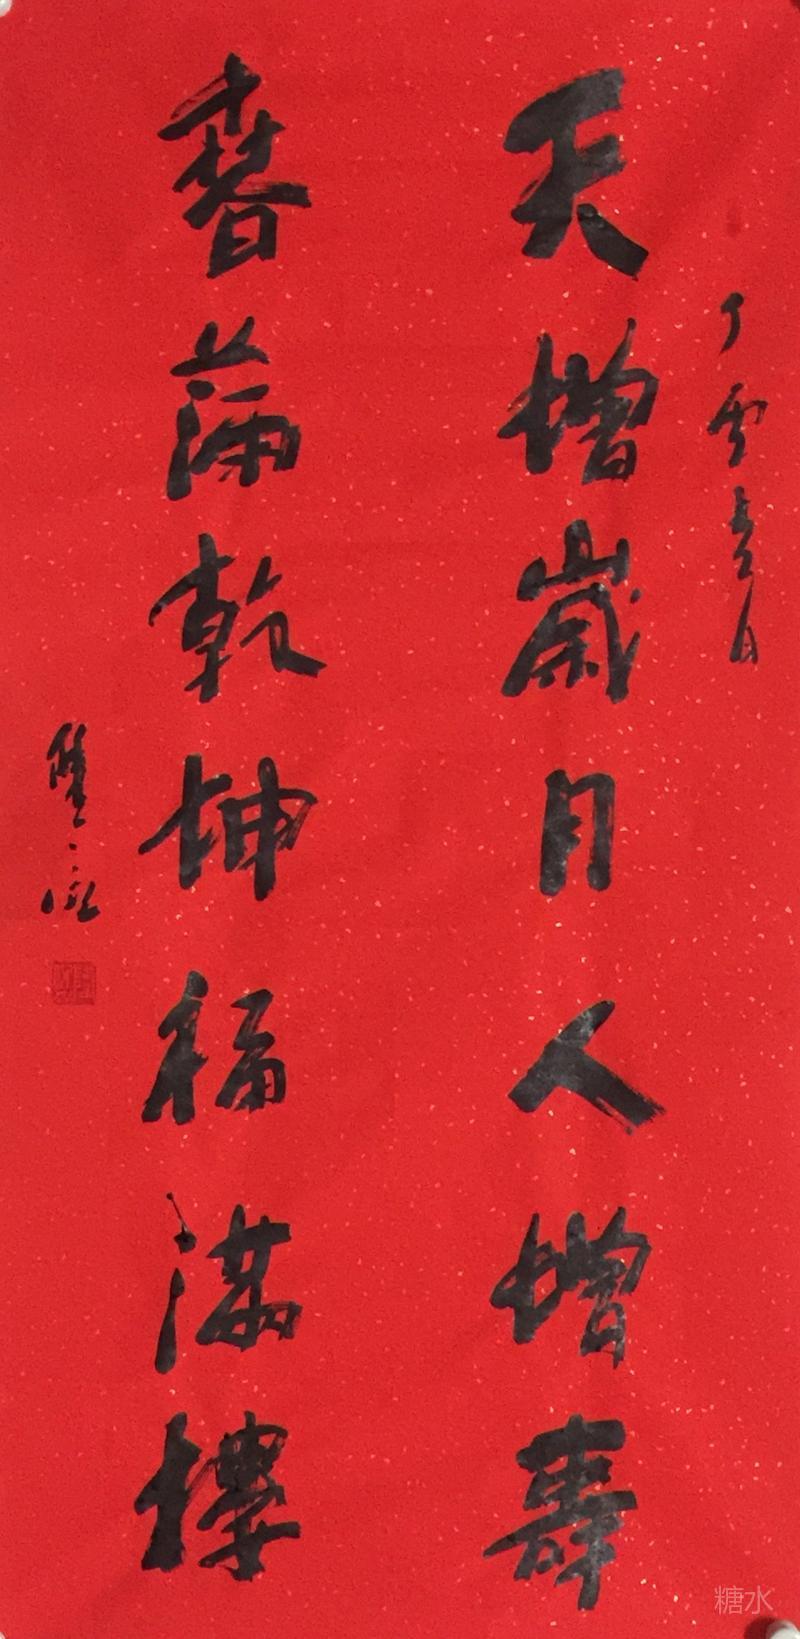 天增歲月人增壽
春滿乾坤福滿樓
糖水